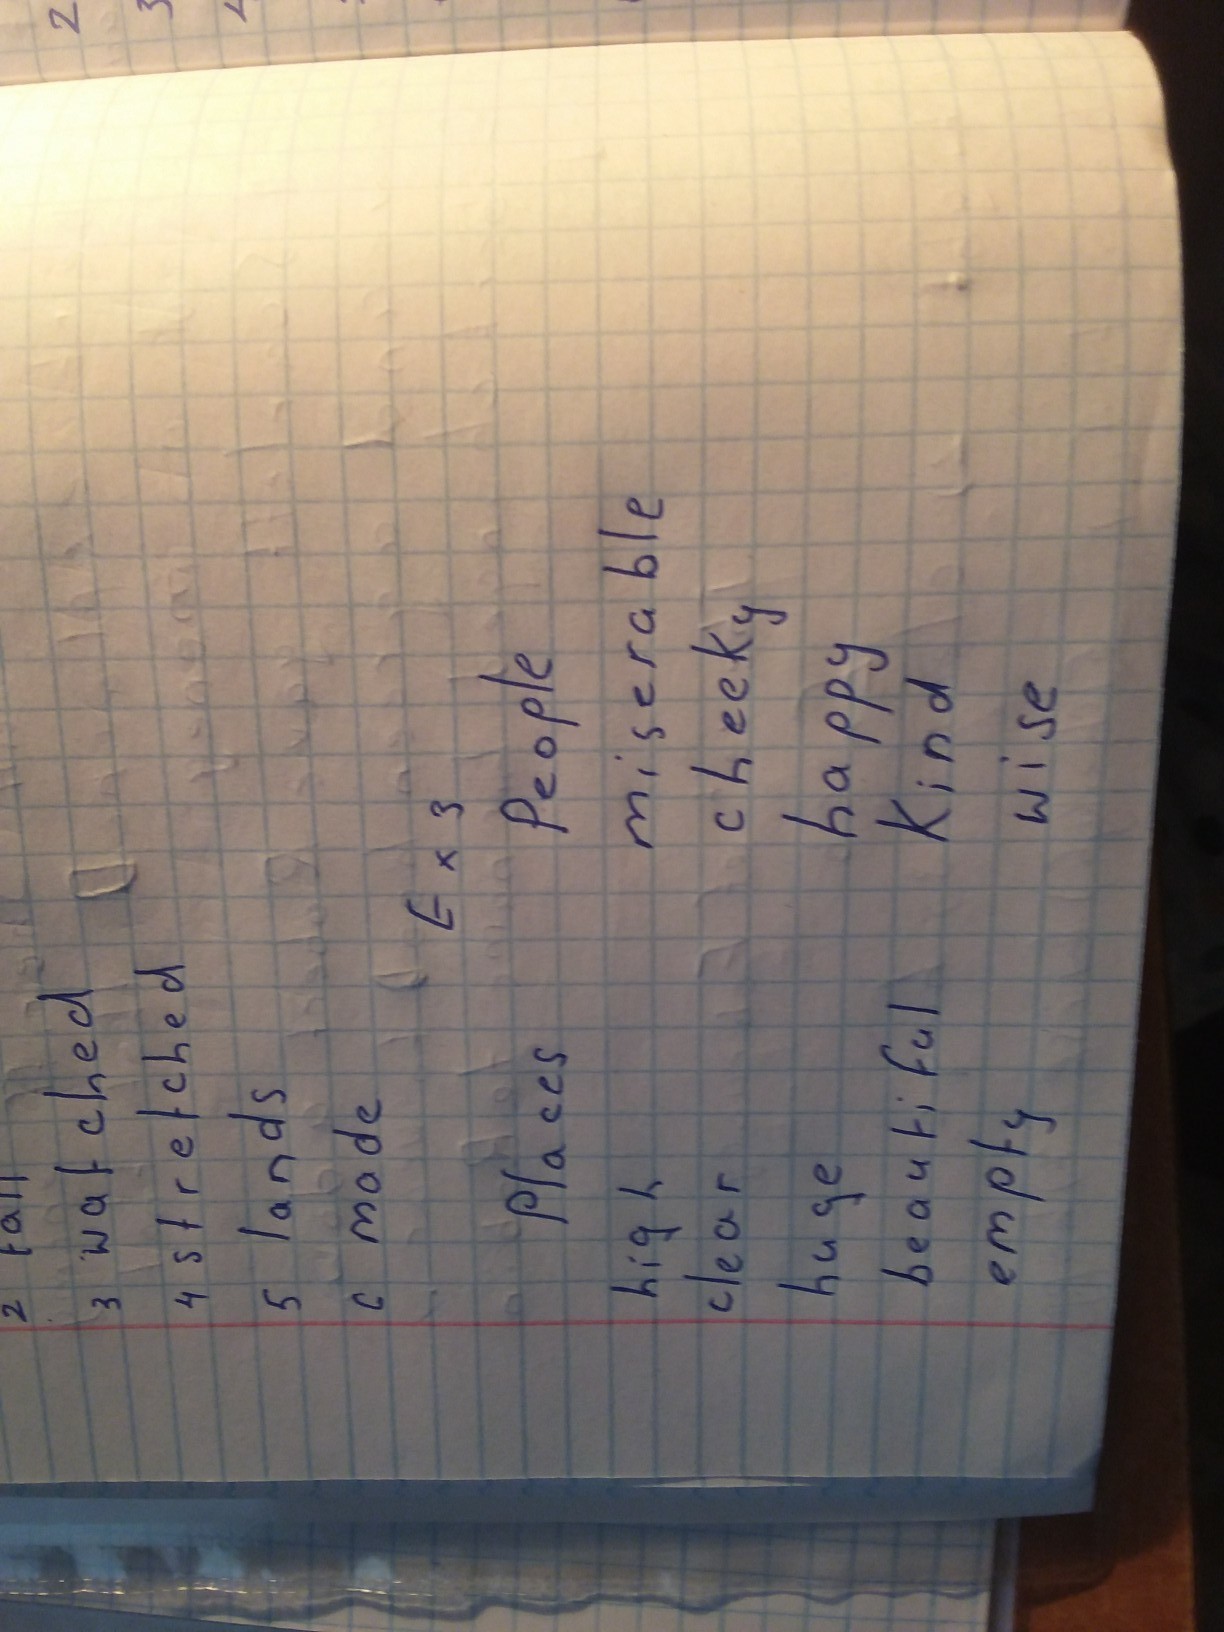 2 tall
3 watched
4 stretched
5 lands
6 made
Ex 3
Places People
high miserable
clear cheeky
huge happy
beautiful Kind
empty wise
2
3